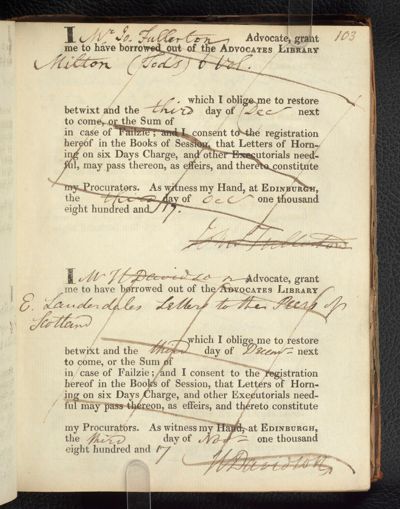 103
I Mr Jo. Fullerton Advocate, grant
me to have borrowed out of the ADVOCATES LIBRARY
Milton (Tods) 6 Vol.
which I oblige me to restore
betwixt and the third day of Dec next
to come, or the Sum of
in case of Failzie; and I consent to the registration
hereof in the Books of Session, that Letters of Horn-
ing on six Days Charge, and other Executorials need-
ful, may pass thereon, as effeirs, and thereto constitute
my Procurators. As witness my Hand, at EDINBURGH,
the third day of Oct one thousand
eight hundred and 17.
Jno Fullerton
I Mr H Davidson Advocate, grant
me to have borrowed out of the ADVOCATES LIBRARY
E. Lauderdales Letters to the Peers of
Scotland
which I oblige me to restore
betwixt and the third day of Decem next
to come, or the Sum of
in case of Failzie; and I consent to the registration
hereof in the Books of Session, that Letters of Horn-
ing on six Days Charge, and other Executorials need-
ful may pass thereon, as effeirs, and thereto constitute
my Procurators. As witness my Hand, at EDINBURGH,
the third day of Nov one thousand
eight hundred and 17
H Davidson